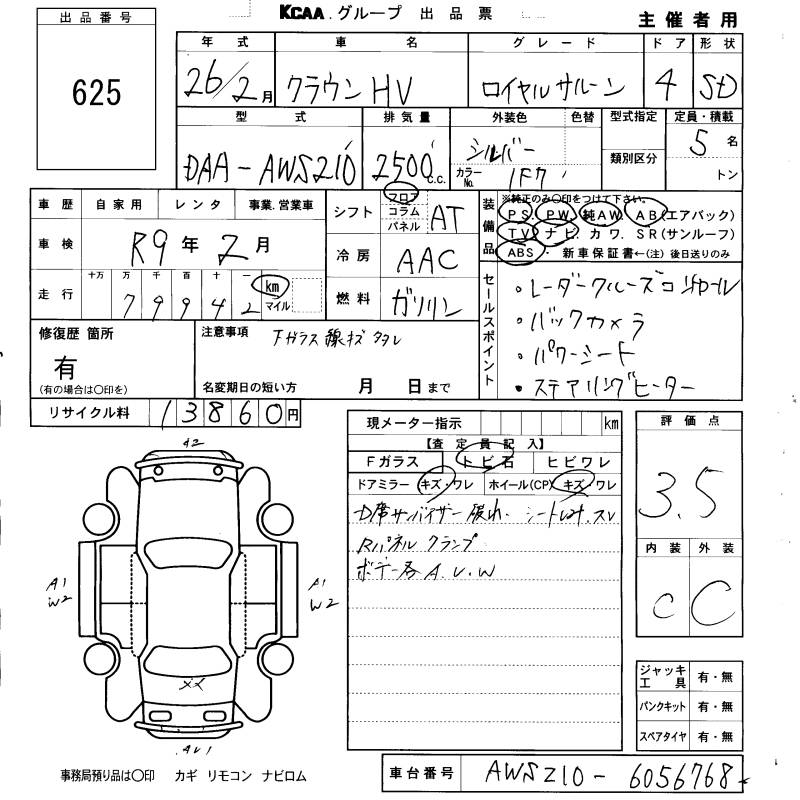 KCAA グループ 出品票
主催者用
出品番号
625
年式 車名 グレード ドア 形状
26/2月 クラウンHV ロイヤルサルーン 4 SD
型式 排気量 外装色 色替 型式指定 定員・積載
DAA-AWS210 2500 c.c. シルバー 5名
カラーNo. 1F7 類別区分 トン
車歴 自家用 レンタ 事業.営業車
車検 R9年2月
走行 十万 万 千 百 十 一
79942 km マイル
シフト フロア コラム パネル AT
冷房 AAC
燃料 ガソリン
装備品 ※純正のみ〇印をつけて下さい。
PS. PW. 純AW. AB(エアバック)
TV. ナビ. カワ. SR(サンルーフ)
ABS. 新車保証書←(注)後日送りのみ
セールスポイント
・レーダークルーズコントロール
・バックカメラ
・パワーシート
・ステアリングヒーター
修復歴 箇所
有
(有の場合は〇印を)
注意事項 Fガラス線キズ
名変期日の短い方 月 日まで
リサイクル料 13860円
現メーター指示 km
【査定員記入】
Fガラス トビ石 ヒビワレ
ドアミラー キズ・ワレ ホイール(CP) キズ・ワレ
D席サンバイザー破れ. シート スレ
Rパネル クランプ
ボデー各A.U.W
評価点
3.5
内装 外装
C C
ジャッキ工具 有・無
パンクキット 有・無
スペアタイヤ 有・無
A2
A1
W2
A1
W2
XX
事務局預り品は〇印 カギ リモコン ナビロム
車台番号 AWS210-6056768